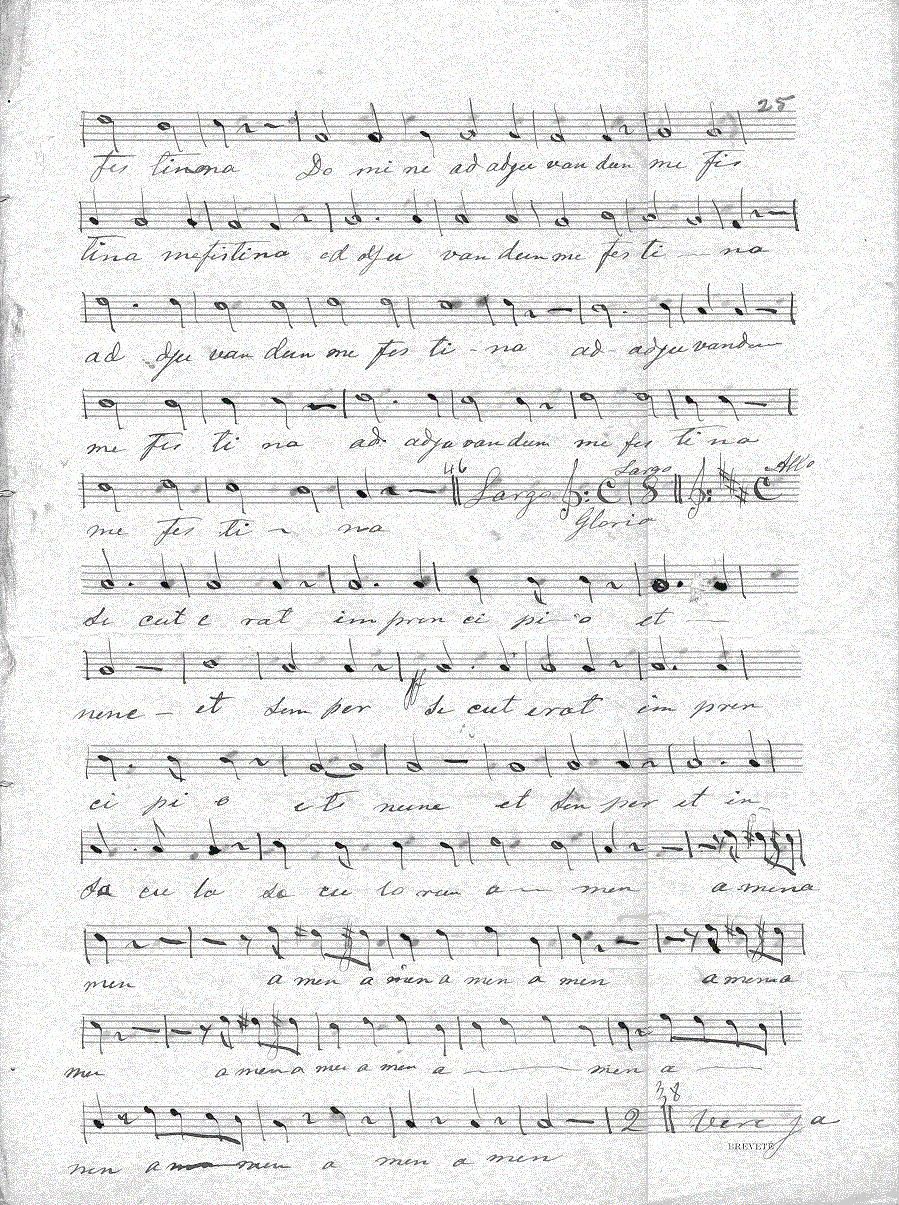 25
fes tinana Do mi ne ad adju van dun me fis
tina mefistina ad dju van dun me fes ti — na
ad dju van dun me fes ti - na ad - adju vandun
me fes ti na ad adju van dum me fes ti na
46 Largo Largo Allo
me fes ti — na Gloria
Si cut e rat im prin ci pi o et —
nene — et sem per ff Si cut erat im prin
ci pi o et nune et sem per et in
Sa cu la sa cu lo run a — men a mena
men a men a men a men a men amena
men a men a men a men a — men a —
38
2 Vere ja
BREVETÉ
men a — men a men a men